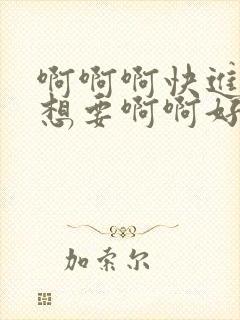 啊啊啊快进
想要啊啊好
加索尔